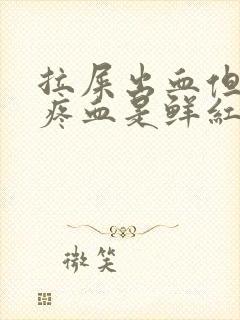 拉屎出血但
疼血是鲜红
微笑